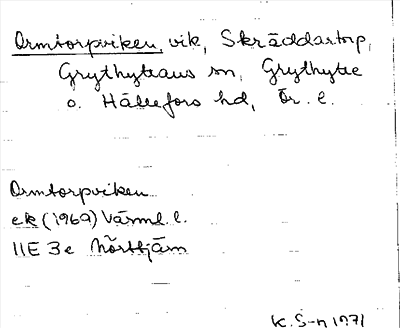 Ormtorpviken, vik, Skräddartorp,
Grythytteans sn, Grythytte
o. Hällefors hd, Ör. l.
Ormtorpviken
ek (1969) Värml. l.
11E 3e Nörttjärn
K. S-n 1971